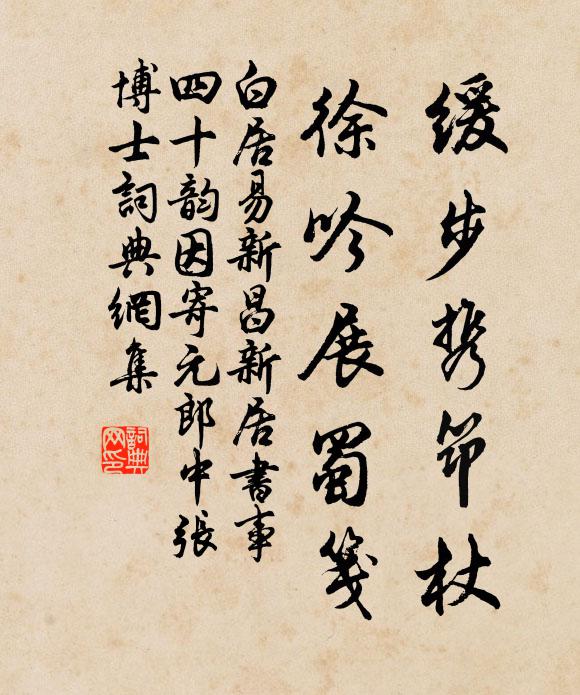 緩步携筇杖
徐吟展蜀箋
白居易新昌新居書事
四十韵因寄元郎中張
博士詞典網集
詞典
网印